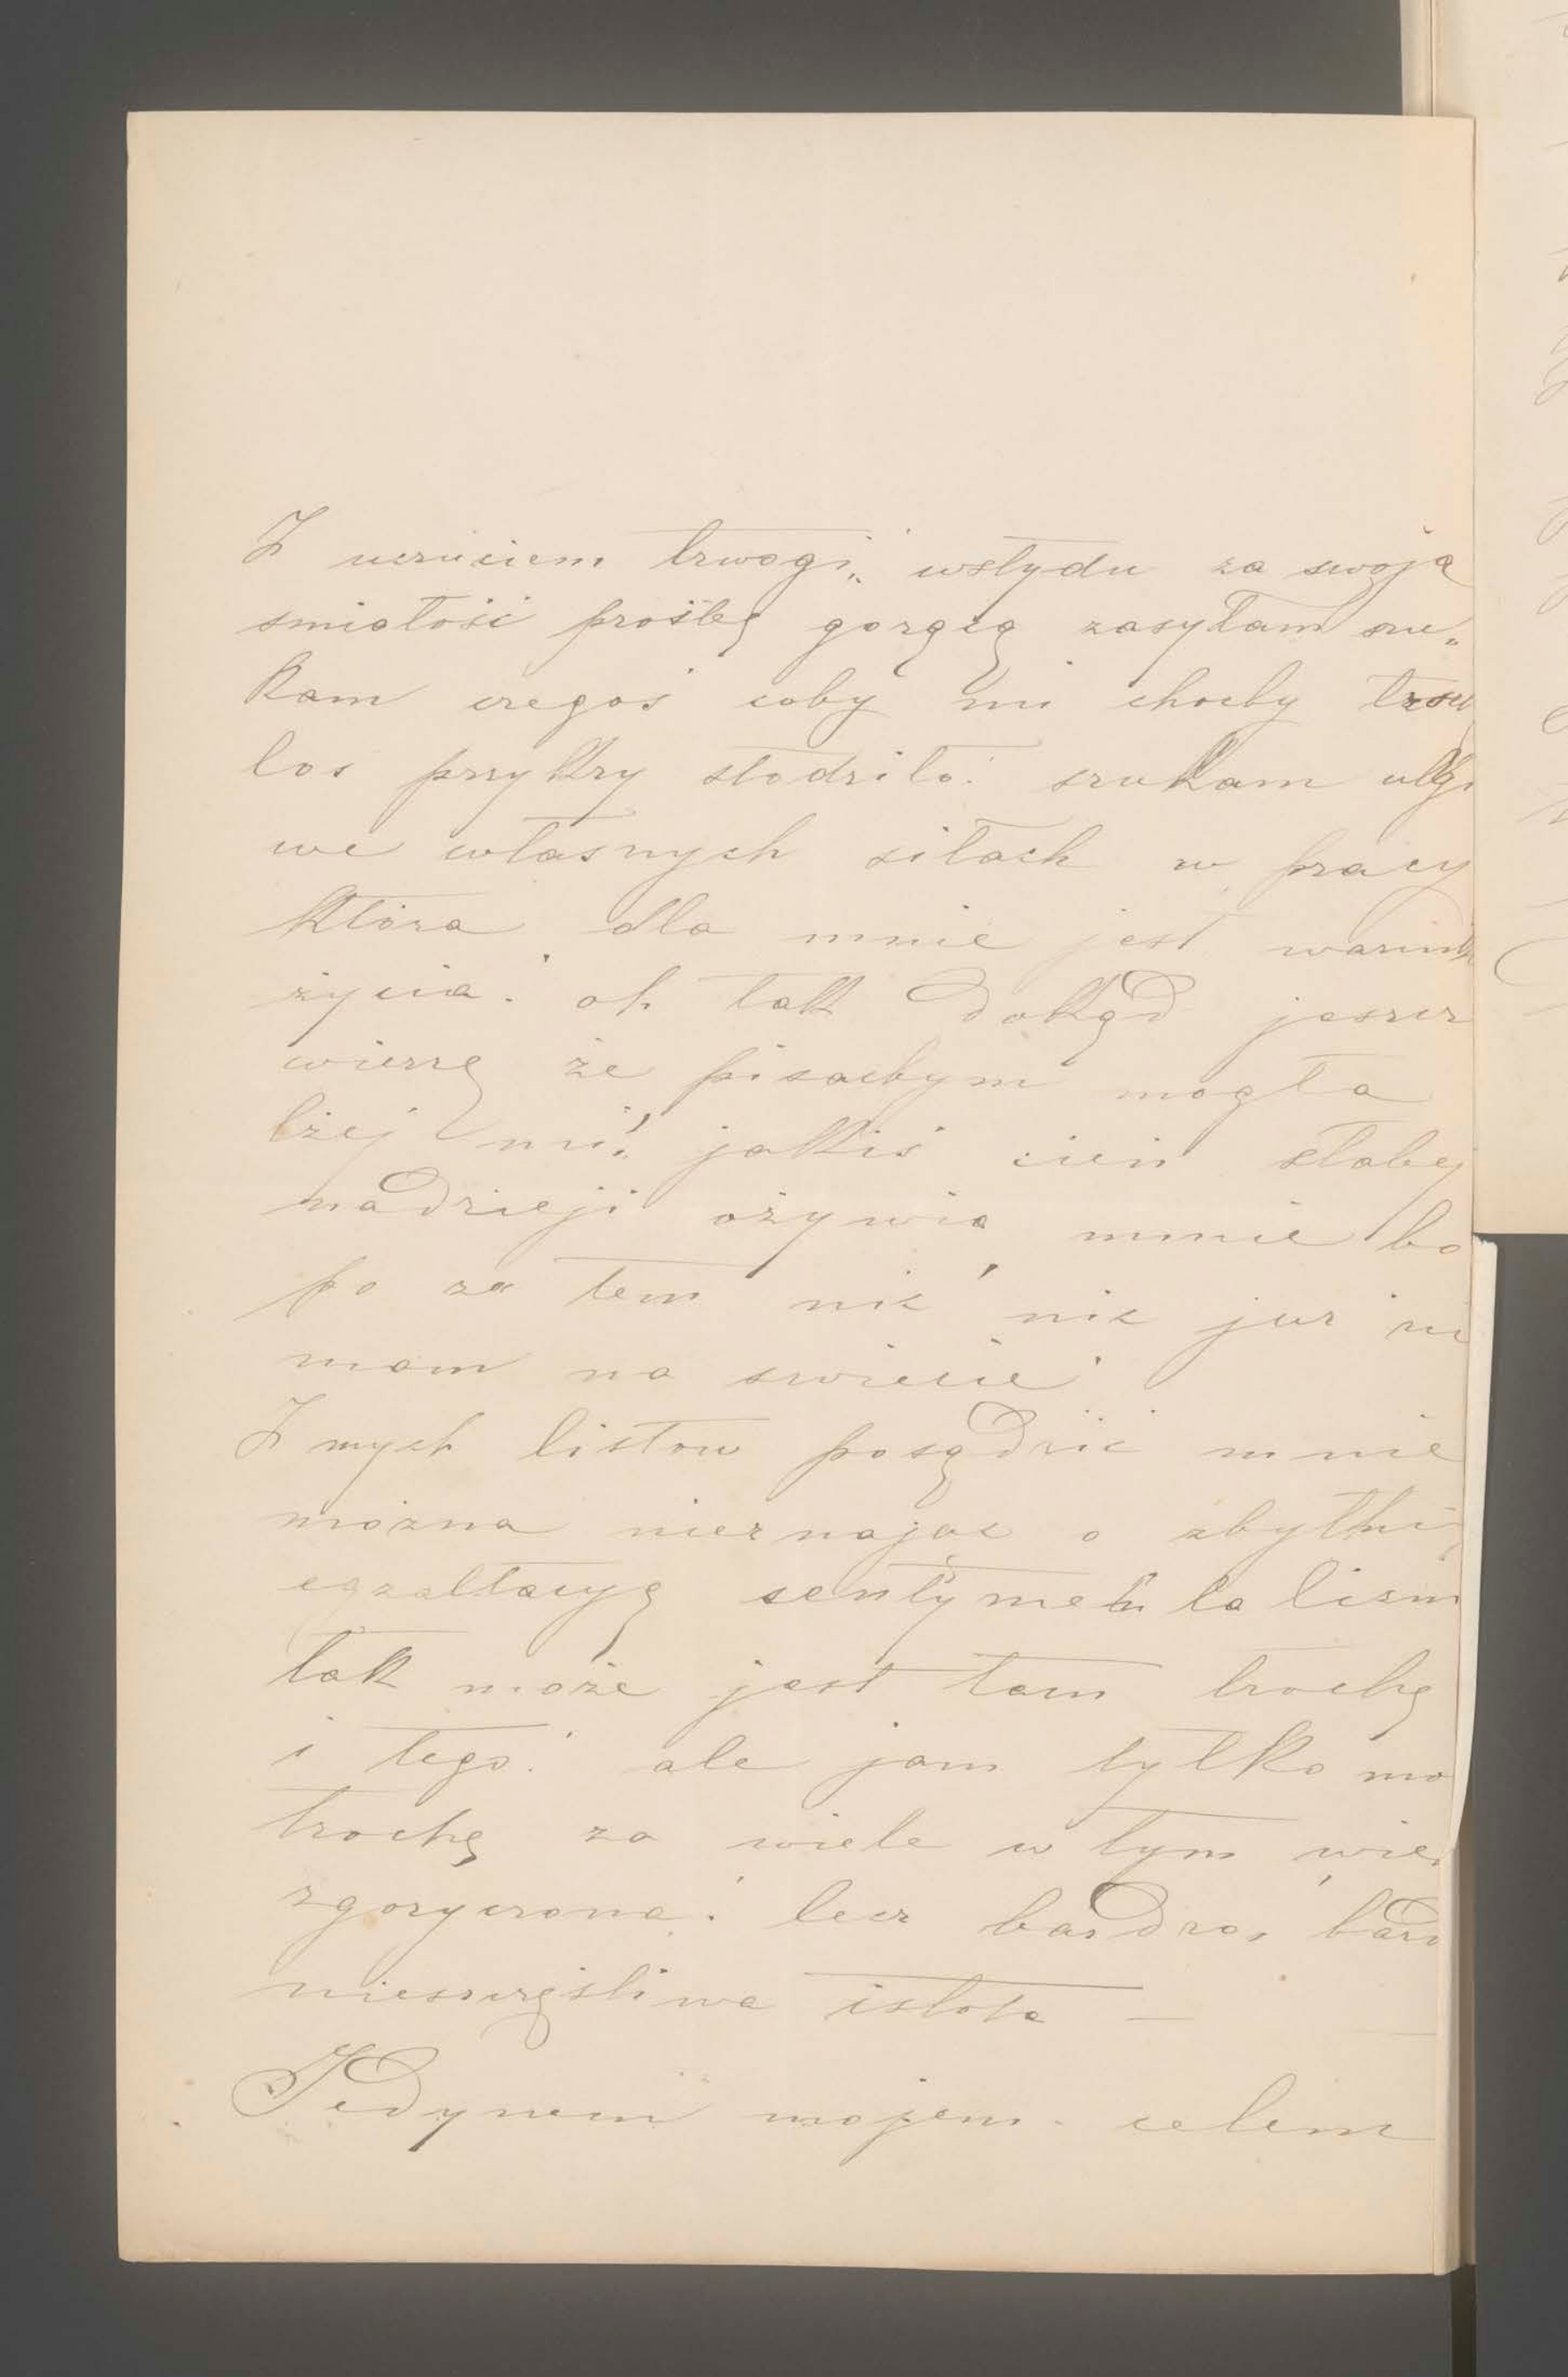 Z uczuciem trwogi, wstydu za swoją
śmiałość prośbę gorącą zasyłam szu„
kam czegoś coby mi choćby
los przykry słodziło. szukam ulgi
we własnych siłach w pracy
która dla mnie jest warunk
życia. oh tak dokąd jeszcz
wierzę że pisaćbym mogła
lżej mi, jakiś cień słabej
nadzieji ożywia mnie bo
po za tem nic, nic już ni
mam na świecie
Z mych listow posądzić mnie
można nieznając o zbytni
egzaltacyę sentymentalizm
tak może jest tam trochę
i tego. ale jam tylko mo
trochę za wiele w tym wie
zgoryczona. lecz bardzo, bard
nieszczęśliwa istota —
Jedynem mojem celem